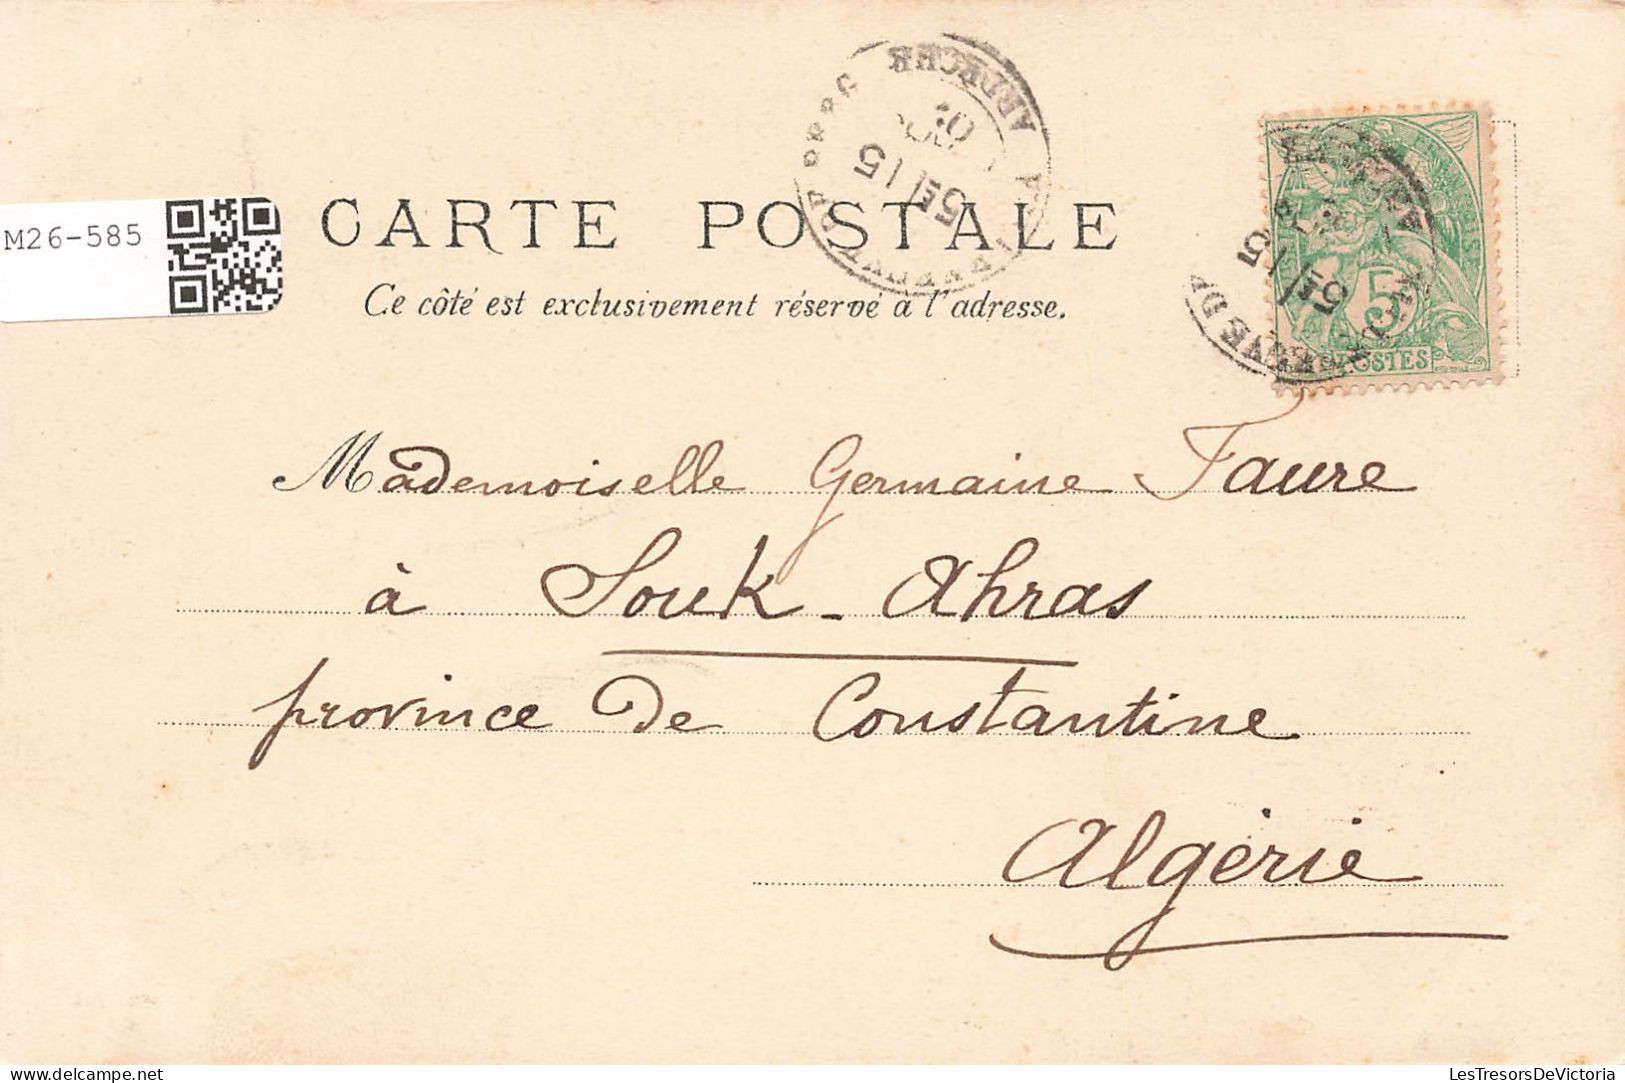 M26-585
CARTE POSTALE
Ce côté est exclusivement réservé à l'adresse.
ARDECHE
5E/15
ARDECHE
5E/15
5
POSTES
Mademoiselle Germaine Faure
à Souk-Ahras
province de Constantine
Algérie
delcampe.net
LesTresorsDeVictoria